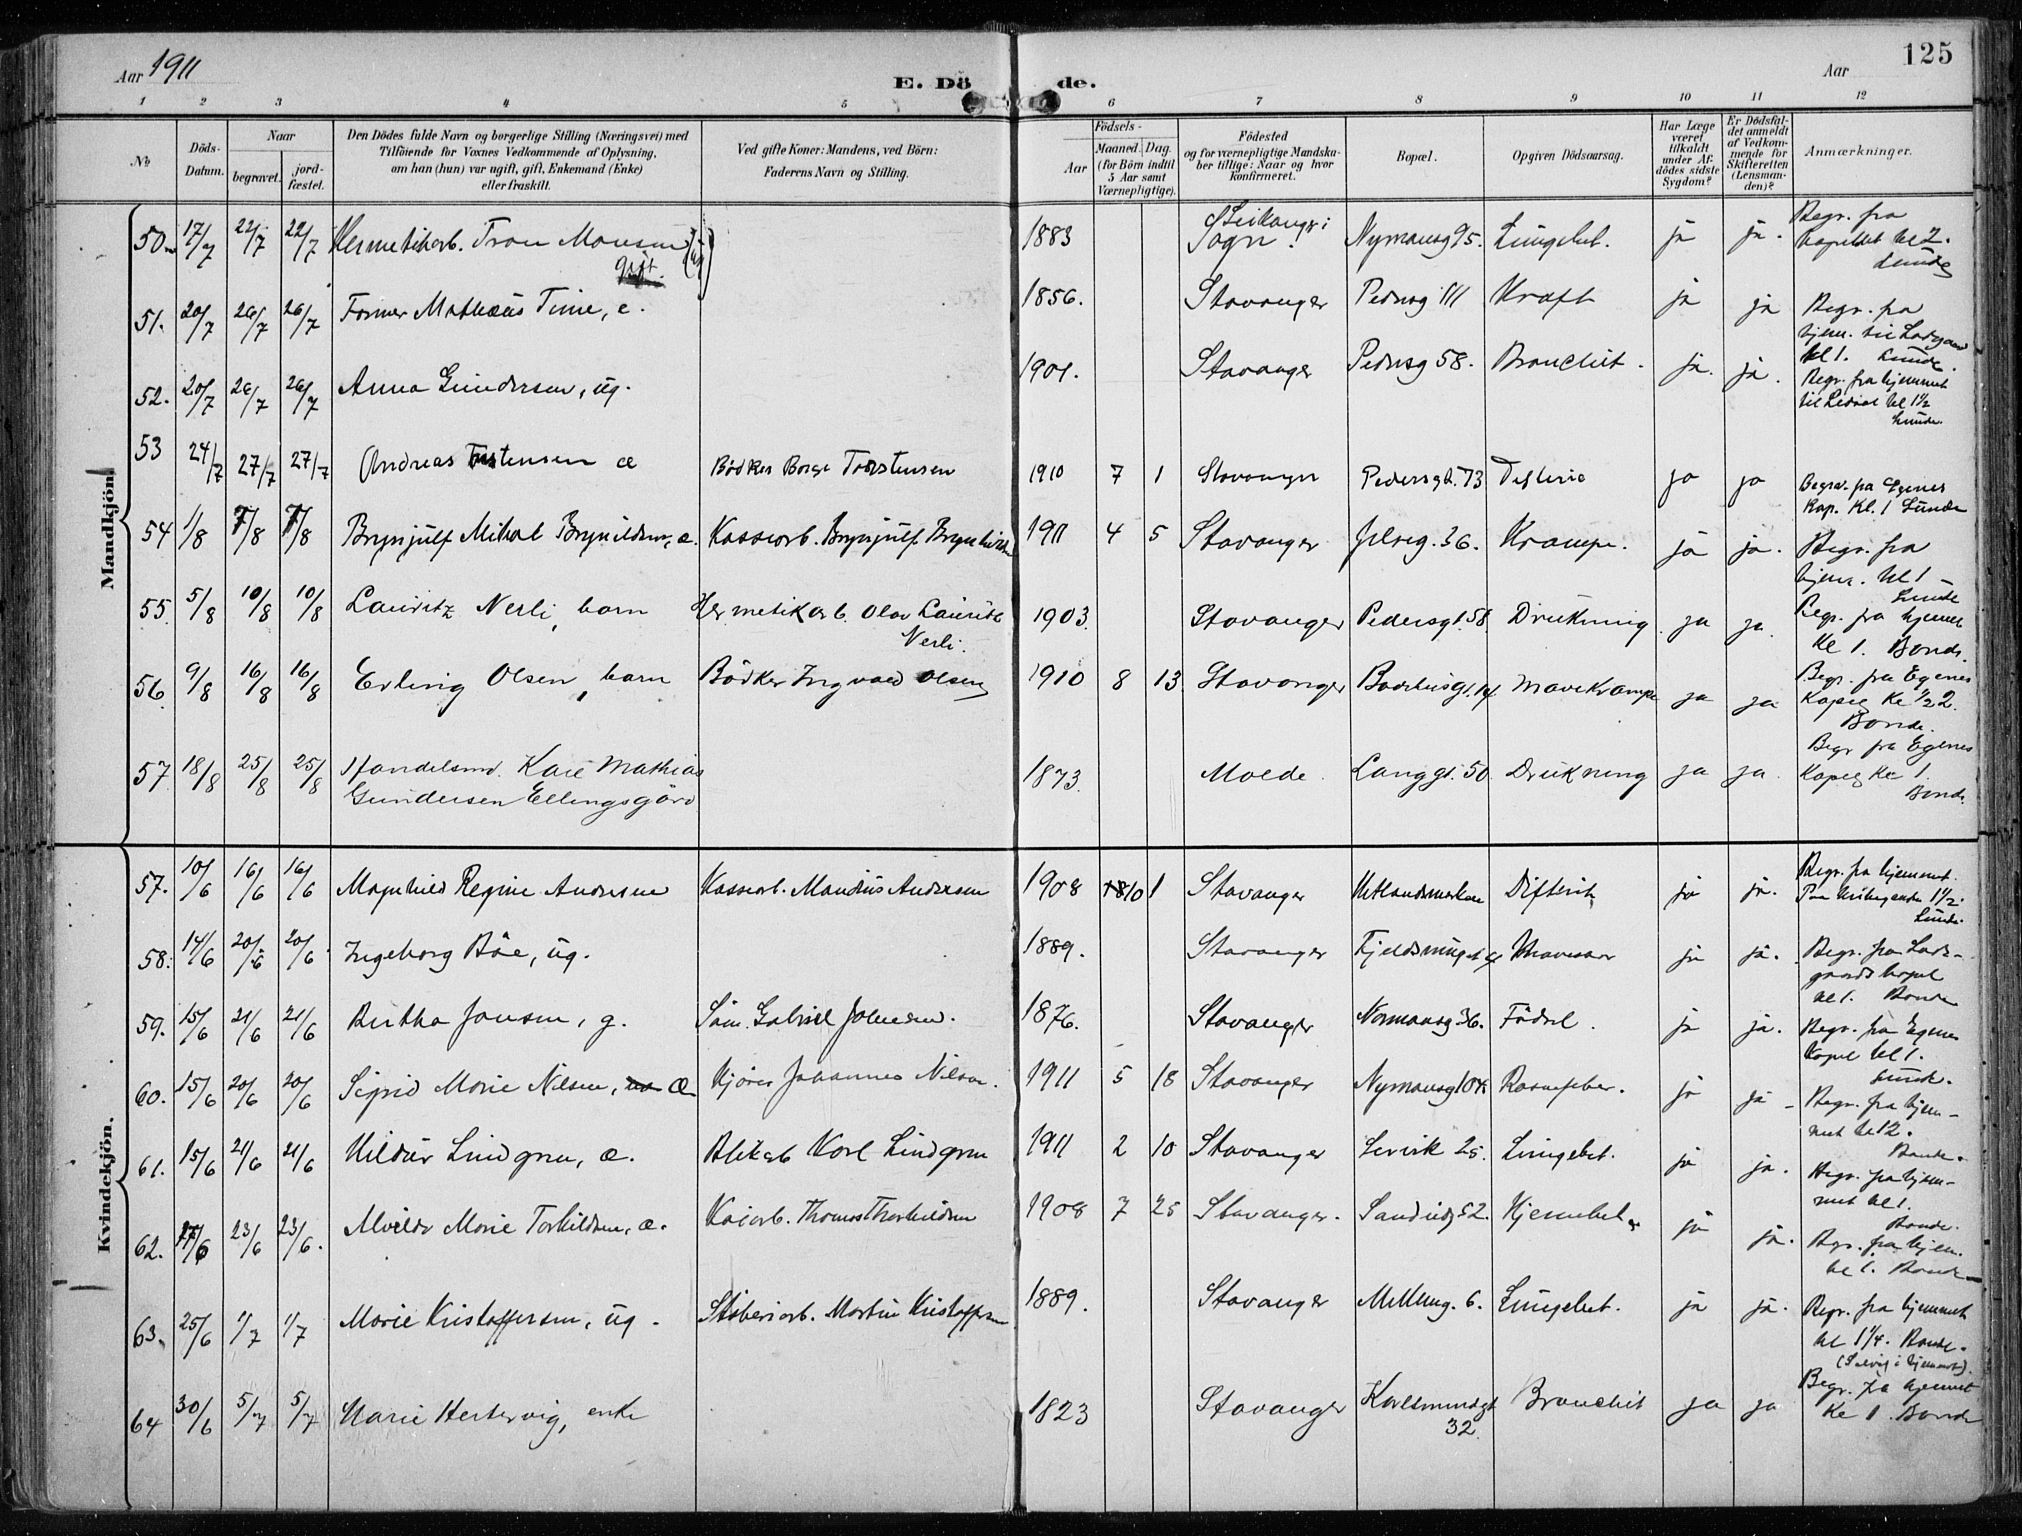 Aar 1911
E. Dö de.
Aar
125
1 2 3 4 5 6 7 8 9 10 11 12
No
Döds-Datum.
Naar
begravet.
jord-fæstet.
Den Dödes fulde Navn og borgerlige Stilling (Næringsvei) med
Tilföiende for Voxnes Vedkommende af Oplysning,
om han (hun) var ugift, gift, Enkemand (Enke)
eller fraskilt.
Ved gifte Koner: Mandens, ved Börn:
Faderens Navn og Stilling.
Födsels-
Aar
Maaned. Dag.
(for Börn indtil
5 Aar samt
Værnepligtige).
Födested
og for værnepligtige Mandska-
ber tillige: Naar og hvor
konfirmeret.
Bopæl.
Opgiven Dödsaarsag.
Har Læge
været
tilkaldt
under Af-
dödes sidste
Sygdom?
Er Dödsfal-
det anmeldt
af Vedkom-
mende for
Skifteretten
(Lensman-
den)?
Anmærkninger.
Mandkjön.
50 17/7 22/7 22/7 Hermetikarb. Tron Monsen gift. 1883 Leikanger i Sogn. 95. Lungebet. ja ja. Begr. fra kapellet kl 2. Lunde
51. 20/7 26/7 26/7 Former Mathæus Time, e. 1856. Stavanger Pedersg 111 Kraft ja ja Begr. fra hjem. til kl 1. Lunde.
52. 20/7 26/7 26/7 Anna Gundersen, ug. 1901. Stavanger Pedersg 58. Bronchit. ja. ja. Begr. fra hjemmet til kl 1½ Lunde.
53 24/7 27/7 27/7 Andreas Torstensen æ Bödker Borge Torstensen 1910 7 1 Stavanger Pedersgt. 73 Difterie ja ja Begrav. fra Egenes Kap. Kl. 1 Lunde
54 1/8 7/8 7/8 Brynjulf Mikal Brynildsen, æ. Kassearb. Brynjulf Brynildsen 1911 4 5 Stavanger 36. Krampe. ja ja. Begr. fra hjem. kl 1 Lunde
55. 5/8 10/8 10/8 Lauritz Nerli, barn Hermetikarb. Olav Lauritz Nerli. 1903. Stavanger Pedersgt. 58. Drukning. ja ja. Begr. fra hjemmet Kl 1. Bonde.
56. 9/8 16/8 16/8 Erling Olsen, barn Bödker Ingvald Olsen 1910 8 13 Stavanger 14 Mavekrampe ja ja Begr. fra Egenes Kapel Kl ½ 2. Bonde.
57 18/8 25/8 25/8 Handelsmd. Karl Mathias Gundersen Ellingsgård 1873. Molde. Langgt. 50. Drukning ja ja. Begr fra Egenes Kapel Kl 1. Bonde.
Kvindekjön.
57. 10/6 16/6 16/6 Magnhild Regine Andersen Kassearb. Mandius Andersen 1908 10 1 Stavanger Hetlandsmarken Difterit ja ja. Begr. fra hjemmet. 1½. Lunde.
58. 14/6 20/6 20/6 Ingeborg Böe, ug. 1889. Stavanger Mavesaar ja ja. Begr. fra Ladegaards kapel kl 1. Bonde
59. 15/6 21/6 21/6 Bertha Jonsen, g. Söm. Gabriel Johnsen. 1876. Stavanger Normansg 36. Födsel. ja ja. Begr. fra Egenes Kapel kl 1. Lunde.
60. 15/6 20/6 20/6 Sigrid Marie Nilsen, æ Kjörer Johannes Nilsen. 1911 5 18 Stavanger ja ja Begr. fra hjemmet kl 12. Bonde.
61. 15/6 21/6 21/6 Hildur Lindgren, æ. Blikarb Karl Lindgren 1911 2 10 Stavanger 25. Lungebet. ja ja. Begr. fra hjemmet kl 1. Bonde.
62. 17/6 23/6 23/6. Alvilde Marie Torkildsen, æ. Kaiarb. Thomas Thorkildsen 1908 7 25 Stavanger. 52. Hjernebet. ja ja. Begr. fra hjem. kl 1. Bonde
63. 25/6 1/7 1/7 Marie Kristoffersen, ug. Støberiarb. Martin Kristoffersen 1889. Stavanger 6. Lungebet. ja ja. Begr. fra hjemmet kl 1¼. Bonde. i hjemmet).
64 30/6 5/7 5/7 Marie Hertervig, enke 1823 Stavanger 32. Bronchit ja ja Begr. fra hjemmet Kl 1. Bonde